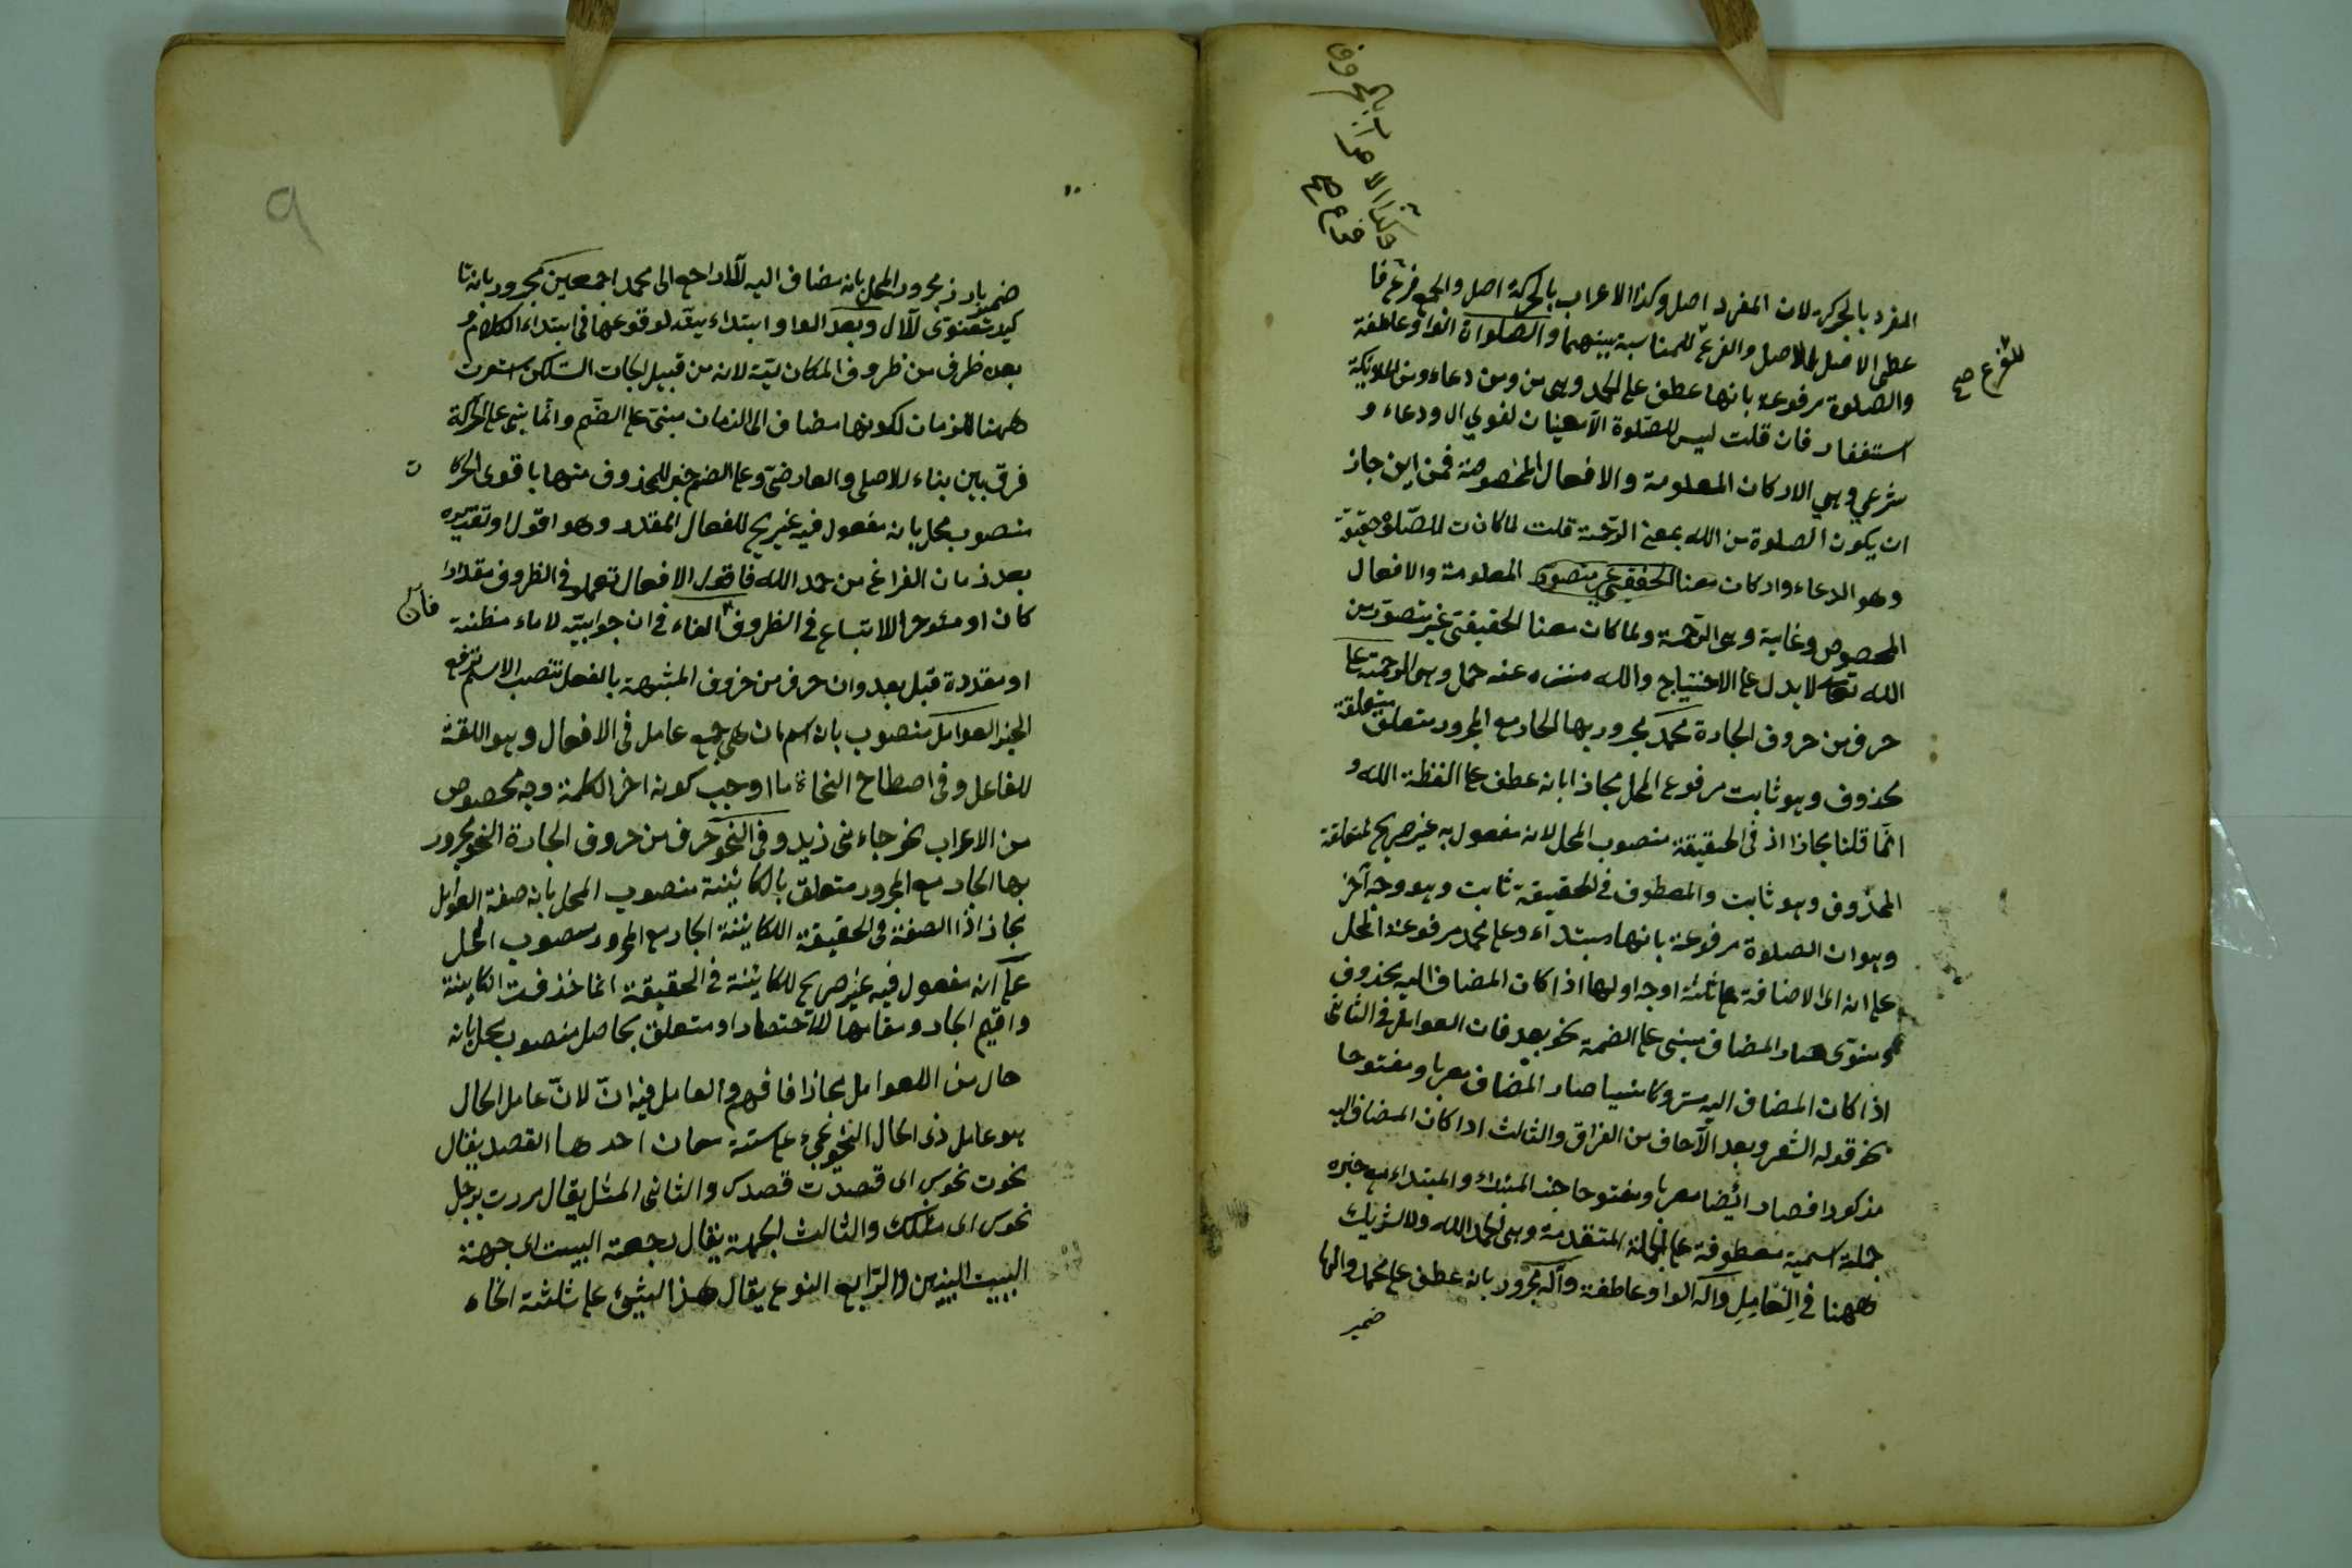 وكذا الاعراب بالحروف
فرع صح
المفرد بالحركة لان المفرد اصل وكذا الاعراب بالحركة اصل والجمع فرع فا
عطى الاصل للاصل والفرع للمناسبة بينهما والصلواة الواو عاطفة
للفرع صح
والصلوة مرفوعة بانها عطف على الحمد وهى من ومن دعاء ومن الملائكة
استغفار فان قلت ليس للصلوة الا معنيان لغوي ال ودعاء و
شرعي وهي الاركان المعلومة والافعال المخصوصة فمن اين جاز
ان يكون الصلوة من الله بمعنى الرحمة قلت لما كان ت للصلوة حقيقة
وهو الدعاء واركان معنا الحقيقي غير متصور المعلومة والافعال
المحصوص وغاية وهى الرحمة ولما كان معنا الحقيقتي غير متصور من
الله تعالى لا يدل على الاحتياج والله منزه عنه حمل وهى الرحمة على
حرف من حروف الجارة محمد مجرور بها الجار مع المجرور متعلق متعلقة
محذوف وهو ثابت مرفوع المحل مجازا بانه عطف على الفظة الله و
انما قلنا مجازا اذ فى الحقيقة منصوب المحل لانه مفعول به غير صريح لمتعلقة
المحذوف وهو ثابت والمعطوف فى الحقيقة ثابت وهو وجه آخر
وهو ان الصلوة مرفوعة بانها مبتداء وعلى محمد مرفوعة المحل
على انه اى الاضافة على ثلثة اوجه اولها اذا كان المضاف اليه محذوف
و منوى صار المضاف مبنى على الضمة نحو بعد فان العوامل فى الثانى
اذا كان المضاف اليه متروكا منسيا صار المضاف معربا ومفتوحا
نحو قوله الشعر وبعد من الفراق والثالث اذا كان المضاف اليه
مذكورا فصار ايضا معربا ومفتوحا خبر المبتداء والمبتداء مع خبره
جملة اسمية معطوفة على الجملة المتقدمة وهى الحمد الله ولا لشريك
ههنا فى العامل وآله الواو عاطفة وآله مجرور بانه عطف على محمد والها
ضمير
١٠
9
ضمير بارز مجرور المحل بانه مضاف اليه للآل راجع الى محمد اجمعين مجرور بانه تا
كيد معنوى للآل وبعد الواو ابتداء ئية لوقوعها فى ابتداء الكلام و
بعد ظرف من ظروف المكان ية لانه من قبيل الجات الست لكن استعرت
ههنا للزمان لكونها مضاف الى الزمان مبنى على الضم وانما بنى على الحركة
فرق بين بناء الاصلى والعارضى وعلى الضم خبر للمحذوف منها باقوى الحركا
ت
منصوب محل بانه مفعول فيه غير يح للفعال المقدر وهو اقول او تقديره
بعد زمان الفراغ من حمد الله فا قول الافعال تعمل فى الظروف مقدرا
كان او مئوخرا للاتساع فى الظروف الفاء فى ان جوابية لاماء مظنة
فان
او مقدرة قبل بعد وان حرف من حروف المشبهة بالفعل تنصب الاسم ترفع
الخبر العوامل منصوب بان اسم ان هى جمع عامل فى الافعال وهو اللغة
للفاعل وفى اصطلاح النحاة ما اوجب كونه اخر الكلمة وجه محصوص
من الاعراب نحو جاء نى زيد وفى النحو حرف من حروف الجارة النحو مجرور
بها الجار مع المجرور متعلق بالكائنة منصوب المحل بانه صفة العوامل
مجازا اذا الصفة فى الحقيقة الكائنة الجار مع المجرور منصوب المحل
على انه مفعول فيه غير صريح للكائنة فى الحقيقة انما حذفت الكائنة
واقيم الجار ومقامها للاختصار او متعلق بحاصل منصوب محل بانه
حال من اللعوامل مجازا فافهم والعامل فيه ان لان عامل الحال
هو عامل ذى الحال النحو يجىء على ستة معان احدها القصد يقال
نحوت نحوك اى قصدت قصدك والثانى المثل يقال مررت برجل
نحوك اى مثلك والثالث الجهة يقال جهة البيت اى جهة
البيت والرابع النوع يقال هذا لشىء على ثلثة انحاء